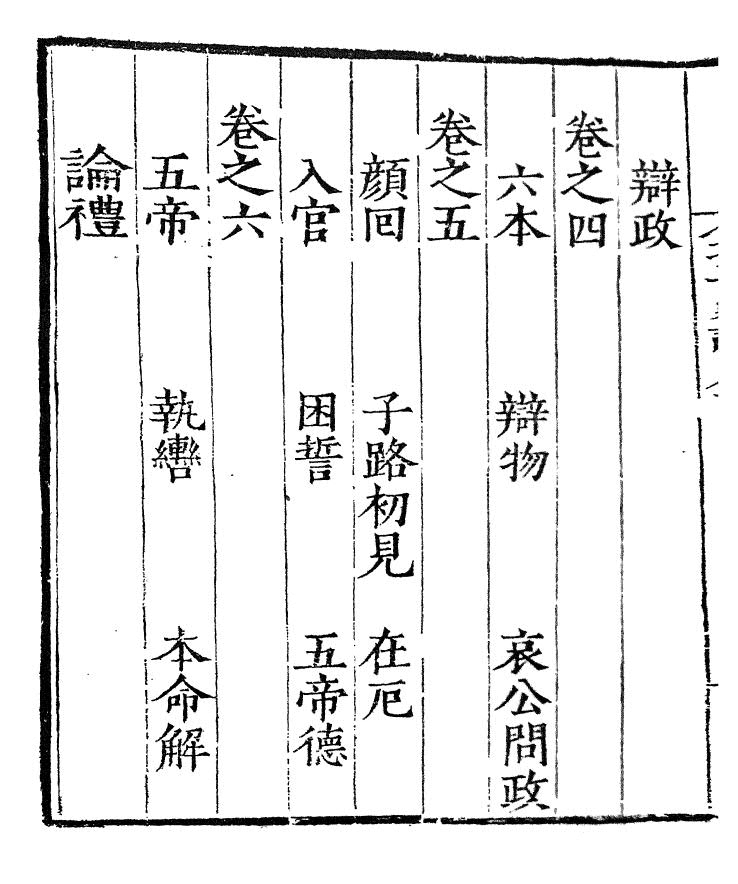 辯政
卷之四
六本 辯物 哀公問政
卷之五
顏回 子路初見 在厄
入官 困誓 五帝德
卷之六
五帝 執轡 本命解
論禮